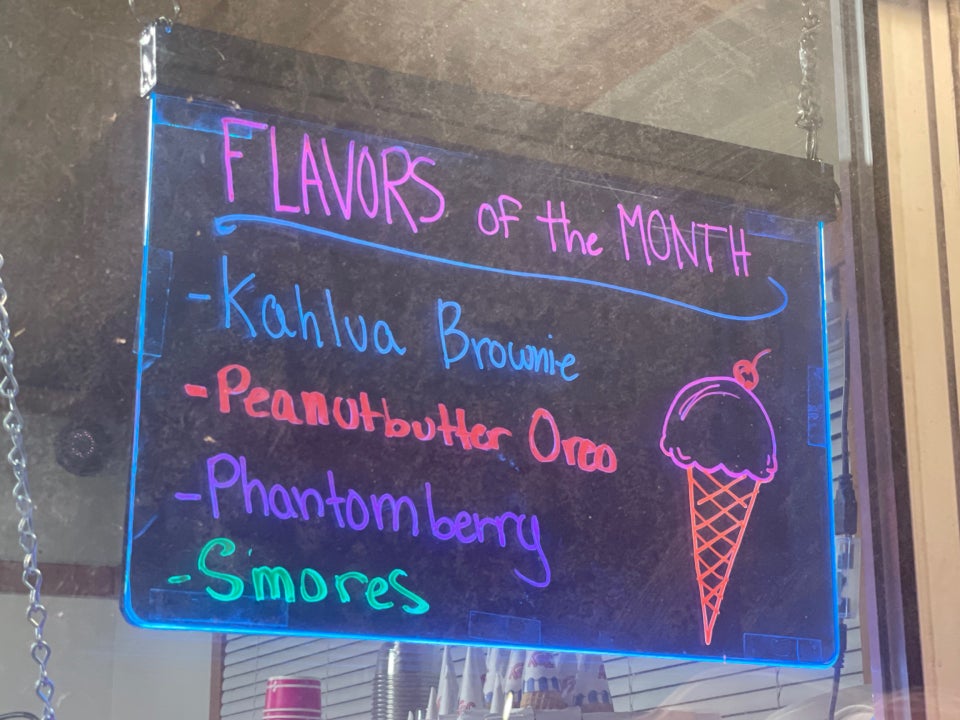 FLAVORS of the MONTH
- Kahlua Brownie
- Peanutbutter Oreo
- Phantomberry
- S'mores